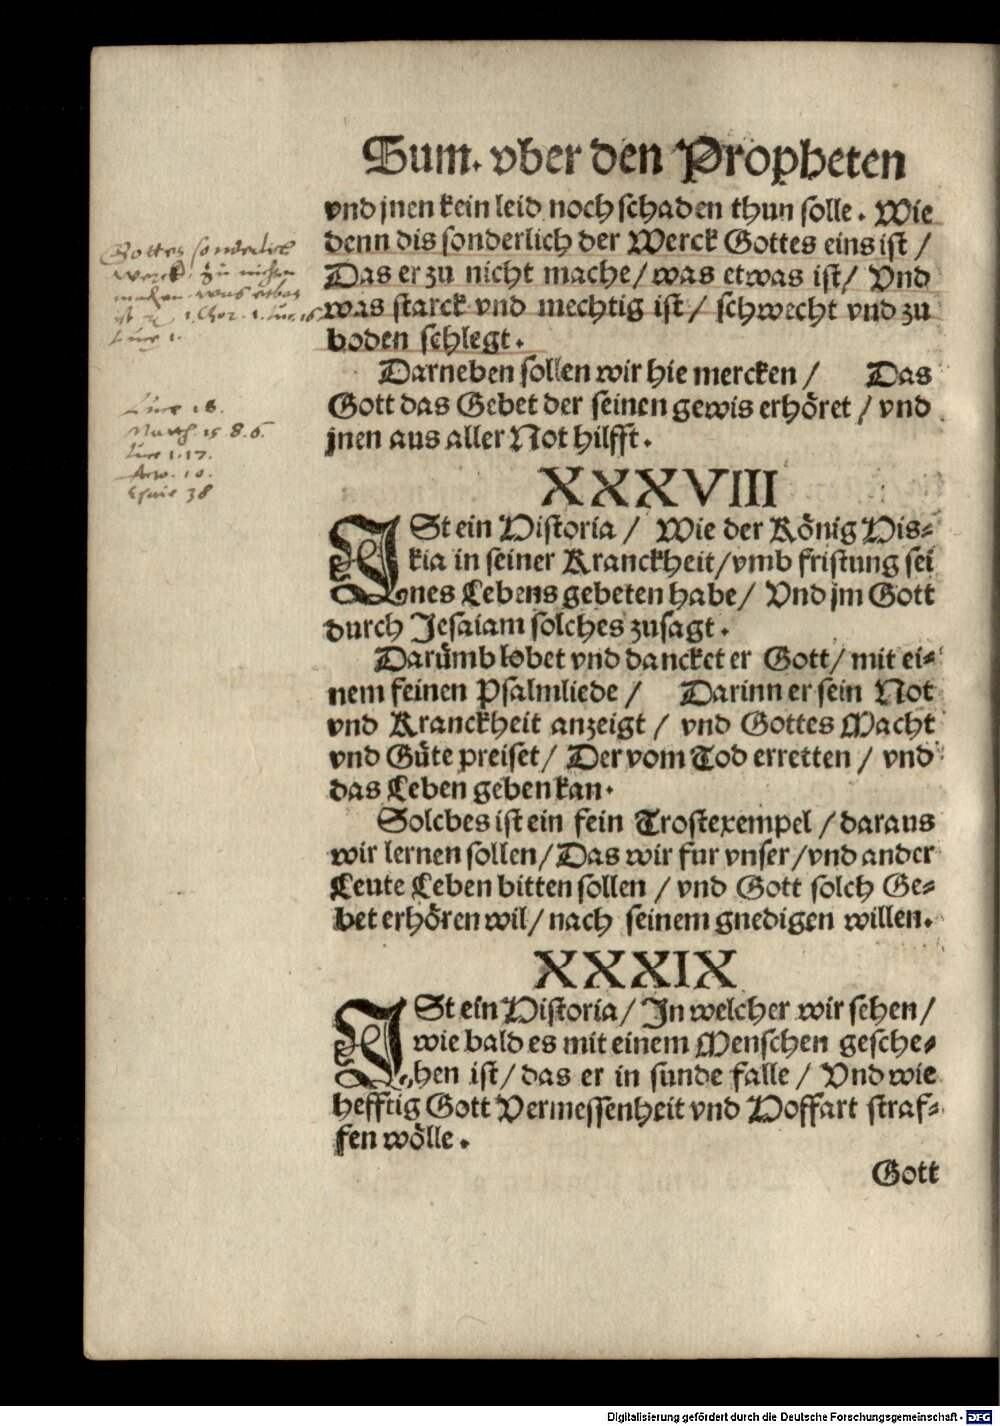 Sum. vber den Propheten
vnd jnen kein leid noch schaden thun solle. Wie
denn dis sonderlich der Werck Gottes eins ist /
Das er zu nicht mache / was etwas ist / Vnd
was starck vnd mechtig ist / schwecht vnd zu
boden schlegt.
Gottes sonderlich
werck zu nichten
machen was etwas
ist 1. Cor. 1.
Luce 1.
Darneben sollen wir hie mercken / Das
Gott das Gebet der seinen gewis erhöret / vnd
jnen aus aller Not hilfft.
Luce 18.
Matth 15. 8. 6.
Luce 1. 17.
Acto. 10.
Esaie 38
XXXVIII
ISt ein Historia / Wie der König His=
kia in seiner Kranckheit / vmb fristung sei
nes Lebens gebeten habe / Vnd jm Gott
durch Jesaiam solches zusagt.
Darümb lobet vnd dancket er Gott / mit ei=
nem feinen Psalmliede / Darinn er sein Not
vnd Kranckheit anzeigt / vnd Gottes Macht
vnd Güte preiset / Der vom Tod erretten / vnd
das Leben geben kan.
Solches ist ein fein Trostexempel / daraus
wir lernen sollen / Das wir fur vnser / vnd ander
Leute Leben bitten sollen / vnd Gott solch Ge=
bet erhören wil / nach seinem gnedigen willen.
XXXIX
ISt ein Historia / In welcher wir sehen /
wie bald es mit einem Menschen gesche=
hen ist / das er in sunde falle / Vnd wie
hefftig Gott Vermessenheit vnd Hoffart straf=
fen wölle.
Gott
Digitalisierung gefördert durch die Deutsche Forschungsgemeinschaft - DFG